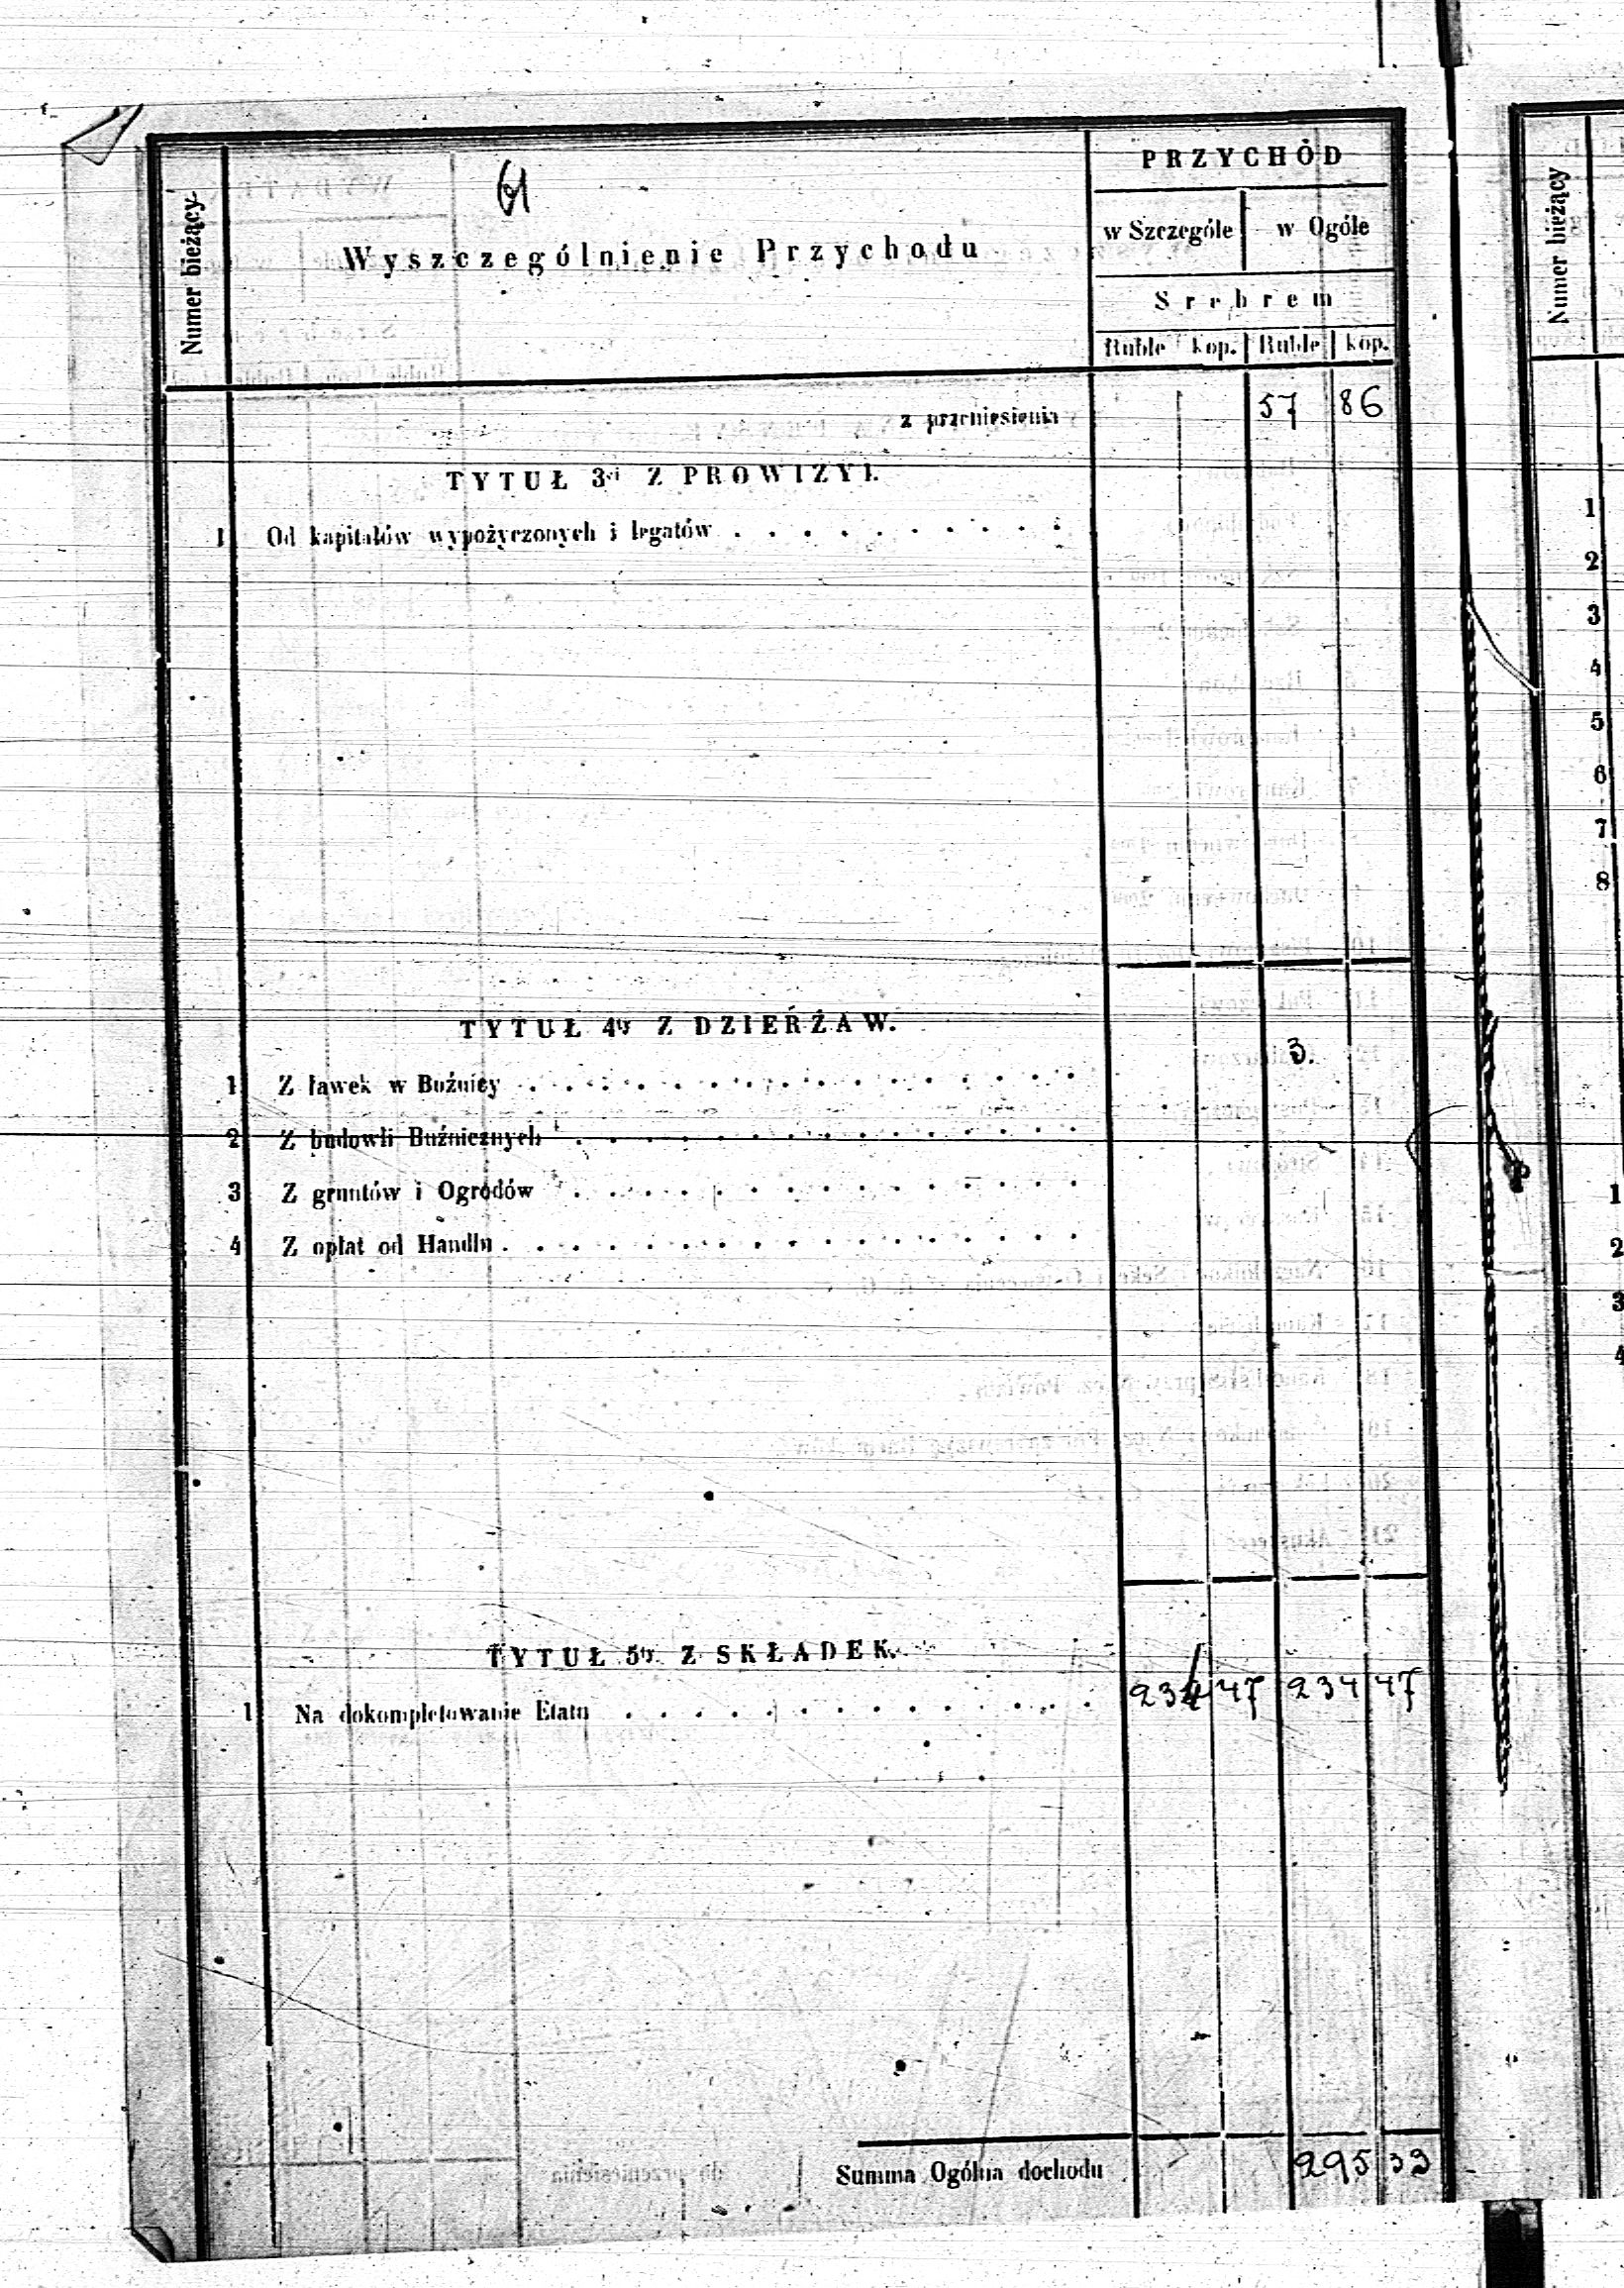 61
PRZYCHÓD
Numer bieżący
Wyszczególnienie Przychodu
w Szczególe w Ogóle
Srebrem
Ruble kop. Ruble kop.
z przeniesienia 57 86
TYTUŁ 3ci Z PROWIZYI.
1 Od kapitałów wypożyczonych i legatów . . . . . . . . . .
TYTUŁ 4ty Z DZIERŻAW.
3.
1 Z ławek w Bóźnicy . . . . . . . . . . . . . . . .
2 Z budowli Bóźnicznych . . . . . . . . . . . . . . .
3 Z gruntów i Ogrodów . . . . . . . . . . . . . . .
4 Z opłat od Handlu . . . . . . . . . . . . . . . . .
TYTUŁ 5ty Z SKŁADEK.
1 Na dokompletowanie Etatu . . . . . . . . . . . . . . 234 47 234 47
Summa Ogólna dochodu 295 33
Numer bieżący
1
2
3
4
5
6
7
8
1
2
3
4